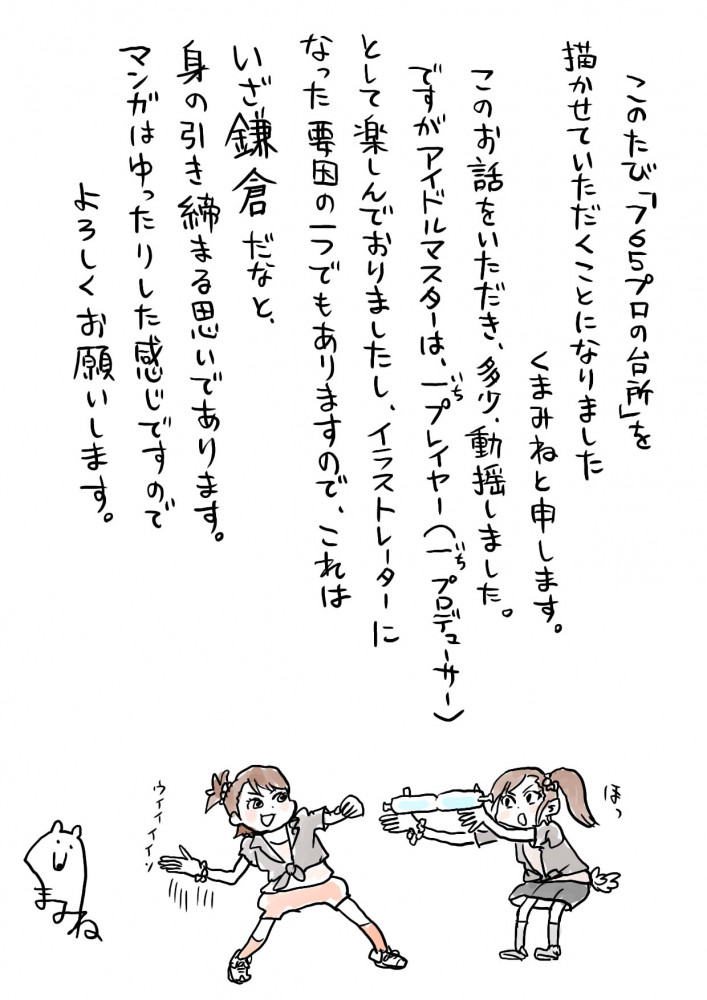 このたび「765プロの台所」を
描かせていただくことになりました
くまみねと申します。
このお話をいただき、多少、動揺しました。
ですがアイドルマスターは、一プレイヤー(一プロデューサー)
いち
いち
として楽しんでおりましたし、イラストレーターに
なった要因の一つでもありますので、これは
いざ鎌倉だなと、
身の引き締まる思いであります。
マンガはゆったりした感じですので
よろしくお願いします。
ほっ
ウィィィィン
まみね